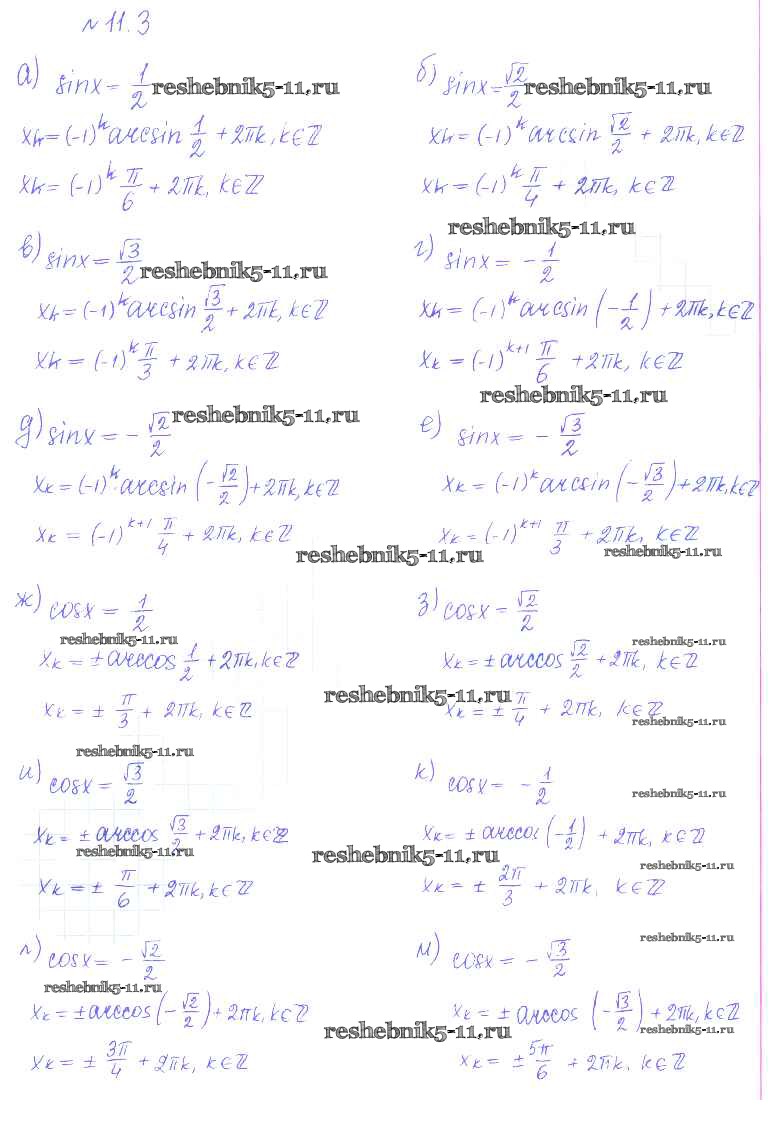 № 11.3
а) sinx = 1/2 reshebnik5-11.ru
xk = (-1)^k arcsin 1/2 + 2πk, k∈ℤ
xk = (-1)^k π/6 + 2πk, k∈ℤ
б) sinx = √2/2 reshebnik5-11.ru
xk = (-1)^k arcsin √2/2 + 2πk, k∈ℤ
xk = (-1)^k π/4 + 2πk, k∈ℤ
reshebnik5-11.ru
в) sinx = √3/2 reshebnik5-11.ru
xk = (-1)^k arcsin √3/2 + 2πk, k∈ℤ
xk = (-1)^k π/3 + 2πk, k∈ℤ
г) sinx = - 1/2
xk = (-1)^k arcsin (- 1/2) + 2πk, k∈ℤ
xk = (-1)^k+1 π/6 + 2πk, k∈ℤ
reshebnik5-11.ru
д) sinx = - √2/2 reshebnik5-11.ru
xk = (-1)^k · arcsin (- √2/2) + 2πk, k∈ℤ
xk = (-1)^k+1 π/4 + 2πk, k∈ℤ
е) sinx = - √3/2
xk = (-1)^k arcsin (- √3/2) + 2πk, k∈ℤ
xk = (-1)^k+1 π/3 + 2πk, k∈ℤ
reshebnik5-11.ru
reshebnik5-11.ru
ж) cosx = 1/2
reshebnik5-11.ru
xk = ± arccos 1/2 + 2πk, k∈ℤ
xk = ± π/3 + 2πk, k∈ℤ
з) cosx = √2/2
reshebnik5-11.ru
xk = ± arccos √2/2 + 2πk, k∈ℤ
reshebnik5-11.ru
xk = ± π/4 + 2πk, k∈ℤ
reshebnik5-11.ru
reshebnik5-11.ru
и) cosx = √3/2
xk = ± arccos √3/2 + 2πk, k∈ℤ
reshebnik5-11.ru
xk = ± π/6 + 2πk, k∈ℤ
к) cosx = - 1/2
reshebnik5-11.ru
xk = ± arccos (- 1/2) + 2πk, k∈ℤ
reshebnik5-11.ru
reshebnik5-11.ru
xk = ± 2π/3 + 2πk, k∈ℤ
л) cosx = - √2/2
reshebnik5-11.ru
xk = ± arccos (- √2/2) + 2πk, k∈ℤ
xk = ± 3π/4 + 2πk, k∈ℤ
reshebnik5-11.ru
м) cosx = - √3/2
xk = ± arccos (- √3/2) + 2πk, k∈ℤ
reshebnik5-11.ru
reshebnik5-11.ru
xk = ± 5π/6 + 2πk, k∈ℤ